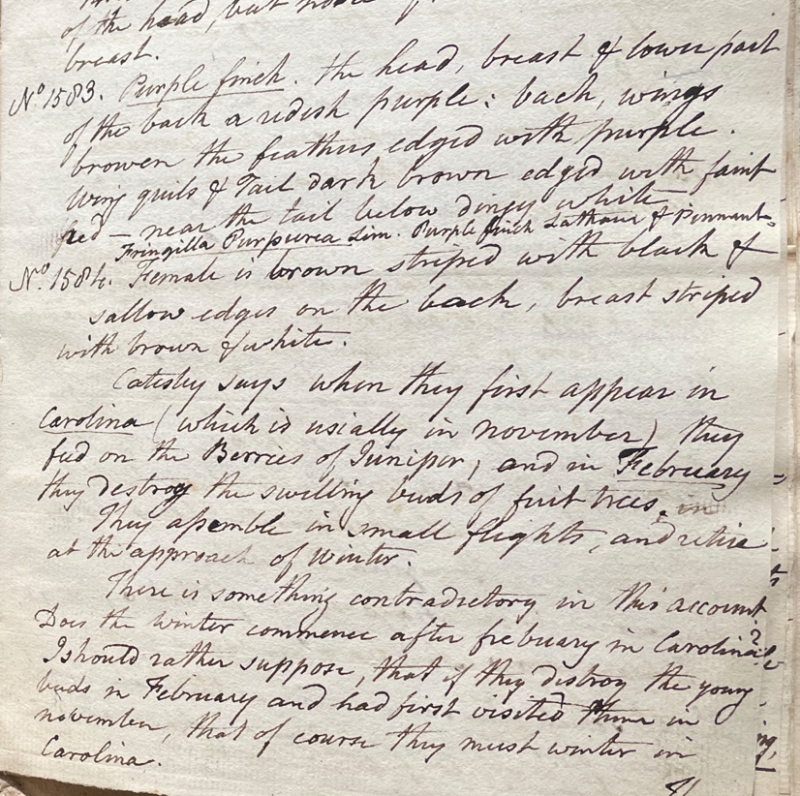 of the head, but
breast.
No 1583. Purple finch. the head, breast & lower part
of the back a redish purple: back, wings
browen the feathers edged with purple.
wing quils & Tail dark brown edged with faint
red — near the tail below dingy white
Fringilla Purpurea Lin. Purple finch Latham & Pennant
No. 1584. Female is brown striped with black &
sallow edges on the back, breast striped
with brown & white.
Catesby says when they first appear in
Carolina (which is usially in november) they
fed on the Berries of Juniper, and in February
they destroy the swelling buds of fruit trees. in
They assemble in small flights, and retire
at the approach of winter.
There is something contradictory in this account
Does the winter commence after frebuary in Carolina?
I should rather suppose, that if they distroy the young
buds in February and had first visited them in
november, that of course they must winter in
Carolina.